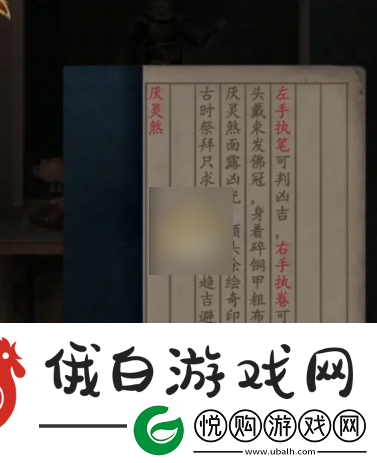 厌灵煞
古时祭拜只求趋吉避
厌灵煞面露凶绘奇印
头戴束发佛冠，身着碎铜甲粗布
左手执笔可判凶吉，右手执卷可
俄白游戏网
G 悦购游戏网
www.ubalh.com